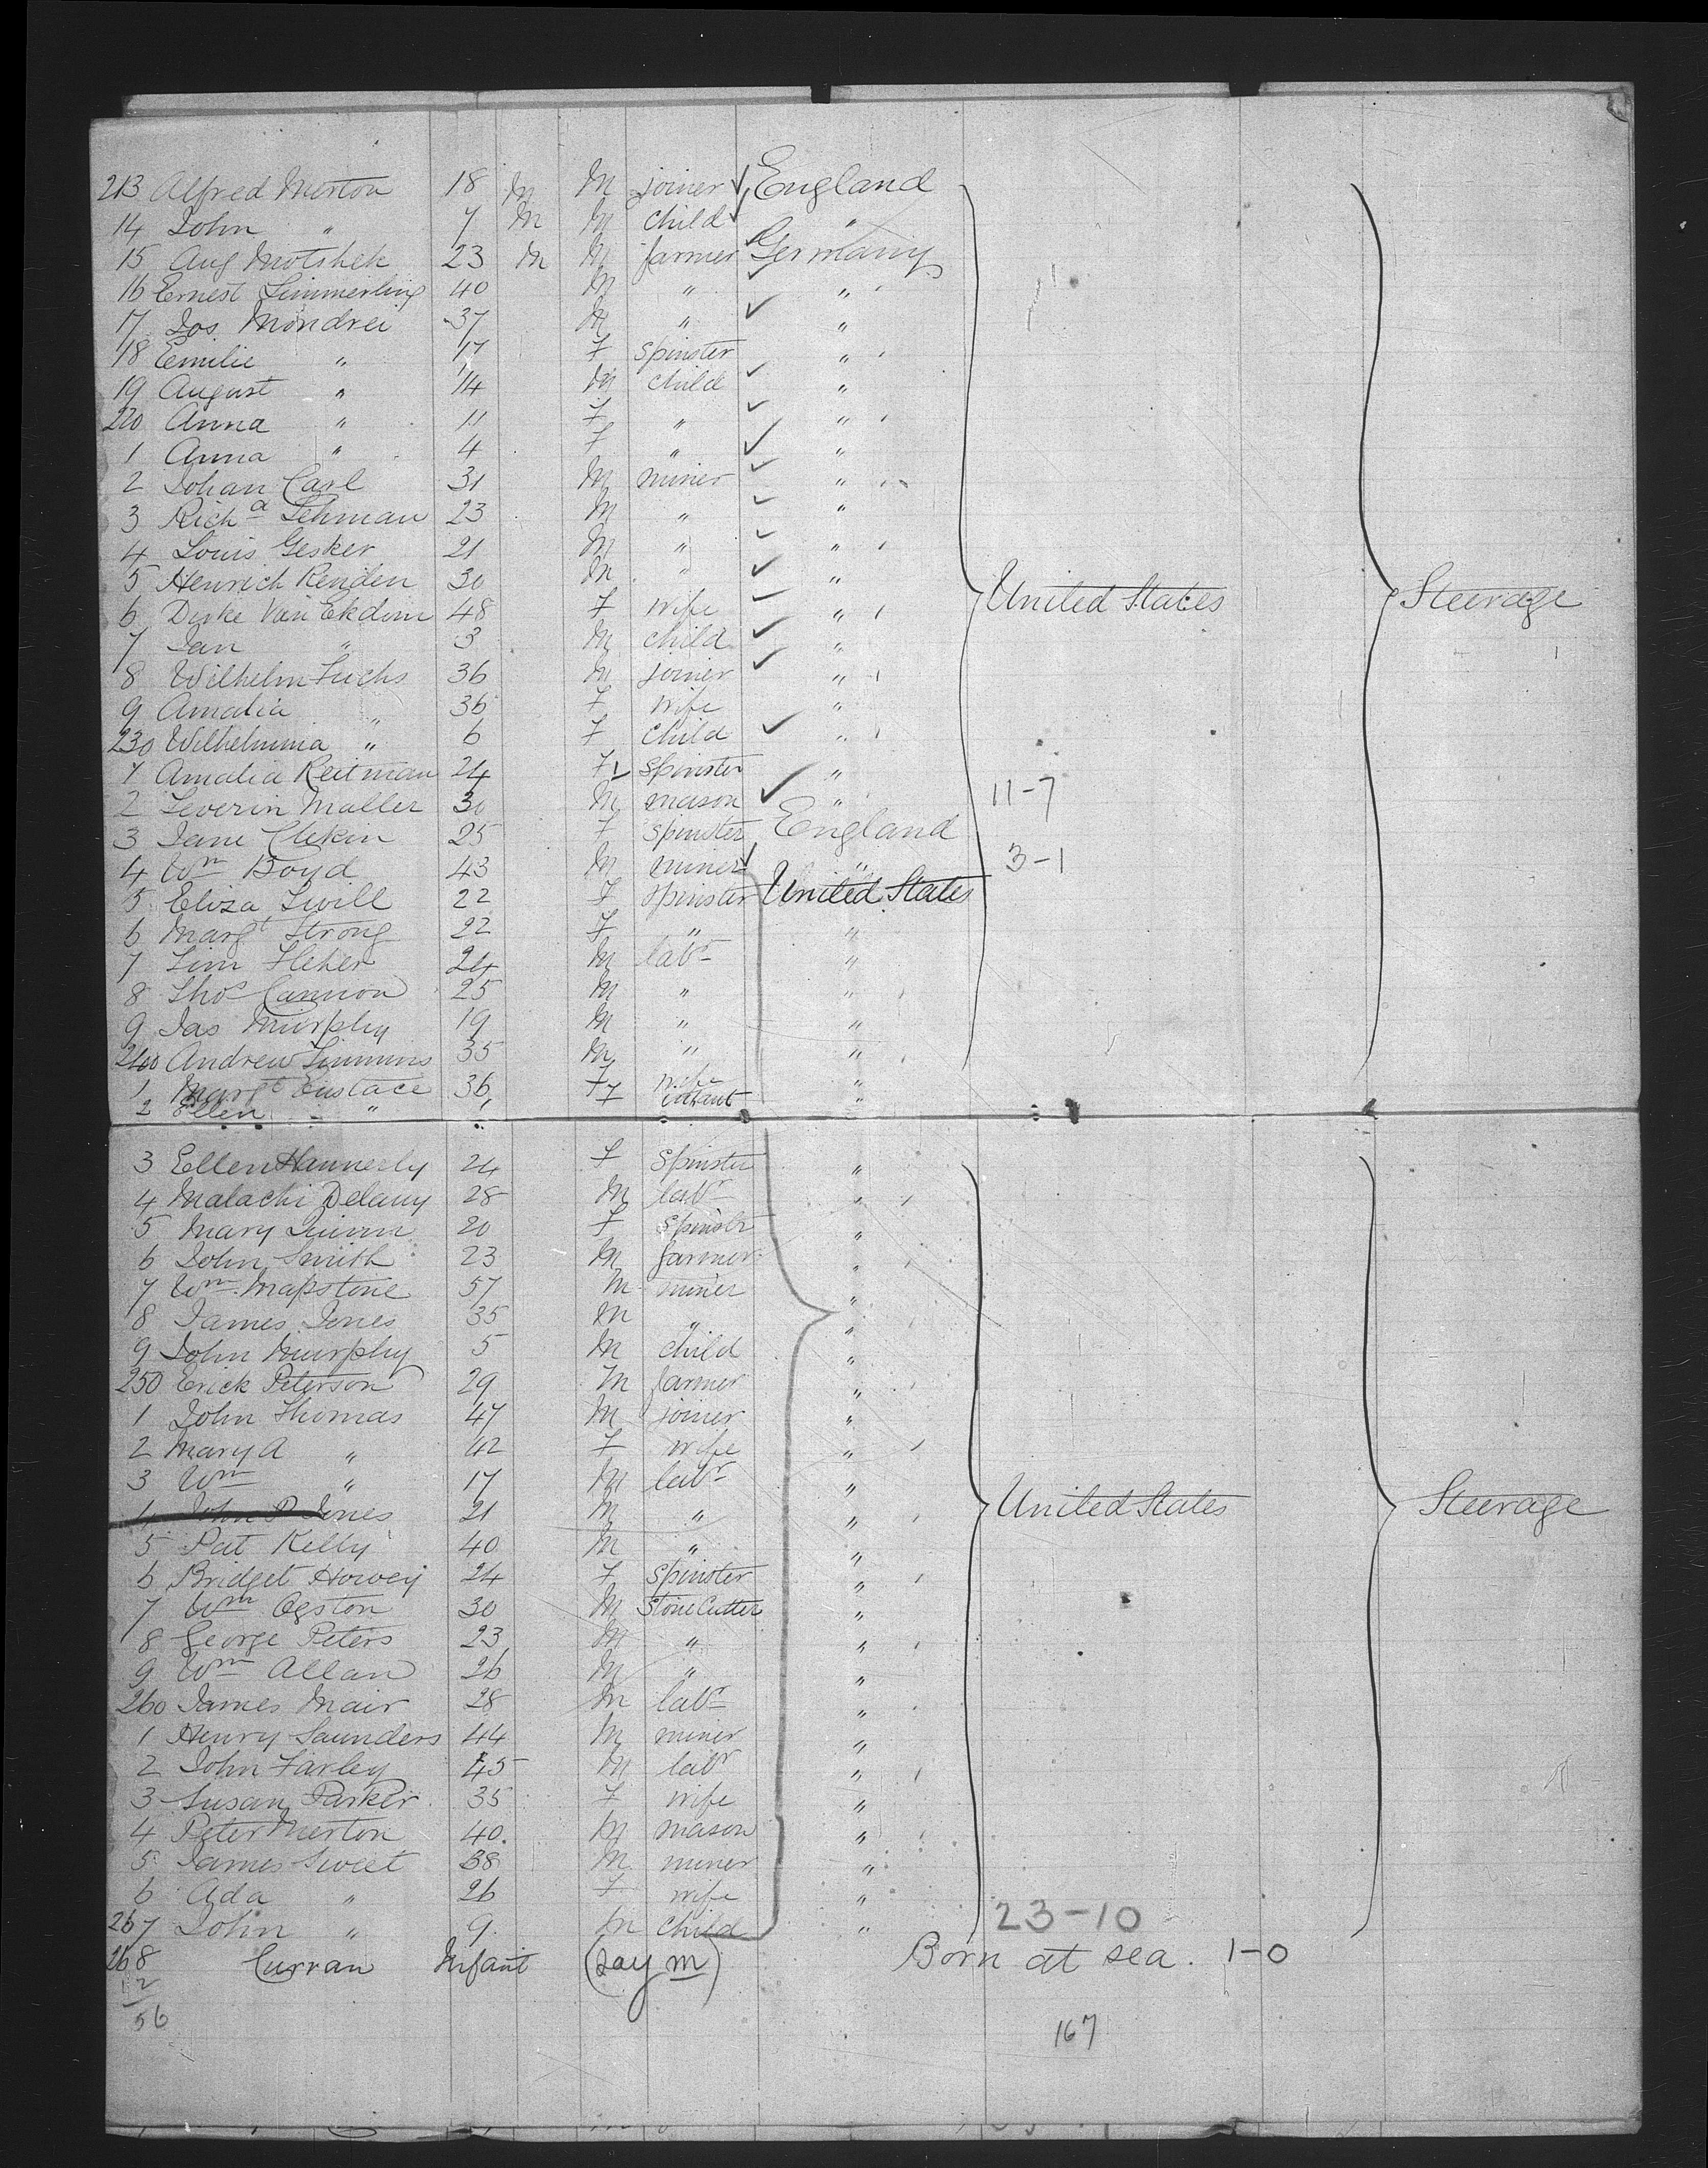 213 Alfred Merton 18 M M joiner England
14 John " 7 M M child "
15 Aug Motshek 23 M M farmer Germany
16 Ernest Simmerling 40 M " "
17 Jos Mondrei 37 M " "
18 Emilie " 17 F spinster "
19 August " 14 M child "
220 Anna " 11 F " "
1 Anna " 4 F " "
2 Johan Carl 31 M miner "
3 Richd Lehman 23 M " "
4 Louis Gesker 21 M " "
5 Henrich Renden 30 M " " United States Steerage
6 Dirke Van Ekdom 48 F wife "
7 Jan " 3 M child "
8 Wilhelm Fuchs 36 M joiner "
9 Amalia " 36 F wife "
230 Wilhelmina " 6 F child "
1 Amalia Reitman 24 F spinster "
2 Severin Maller 30 M mason " 11-7
3 Jane Clekin 25 F spinster England
4 Wm Boyd 43 M miner " 3-1
5 Eliza Swill 22 F spinster United States
6 Margt Strong 22 F " "
7 Tim 24 M labr "
8 Thos Cannon 25 M " "
9 Jas Murphy 19 M " "
240 Andrew Simmins 35 M " "
1 Margt Eustace 36 F wife "
2 Ellen " 1 F infant "
3 Ellen Hannerly 24 F spinster "
4 Malachi Delany 28 M labr "
5 Mary Quinn 20 F spinstr "
6 John Smith 23 M farmer "
7 Wm Mapstone 57 M miner "
8 James Jones 35 M " "
9 John Murphy 5 M child "
250 Erick Peterson 29 M farmer "
1 John Thomas 47 M joiner "
2 Mary A " 42 F wife "
3 Wm " 17 M labr "
4 John P Jones 21 M " " United States Steerage
5 Pat Kelly 40 M " "
6 Bridget Howey 24 F spinster "
7 Wm Ogston 30 M Stone Cutter "
8 George Peters 23 M " "
9 Wm Allan 26 M " "
260 James Mair 28 M labr "
1 Henry Saunders 44 M miner "
2 John Farley 45 M labr "
3 Susan Parker 35 F wife "
4 Peter Merton 40 M mason "
5 James Sweet 38 M miner "
6 Ada " 26 F wife "
267 John " 9 M child " 23-10
268 Curran Infant (say m) Born at sea. 1-0
12
56
167